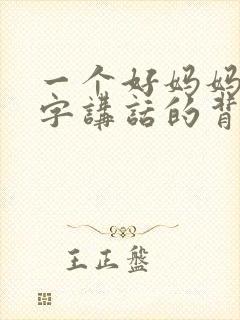 一个好妈妈
字講話的背
王正盤